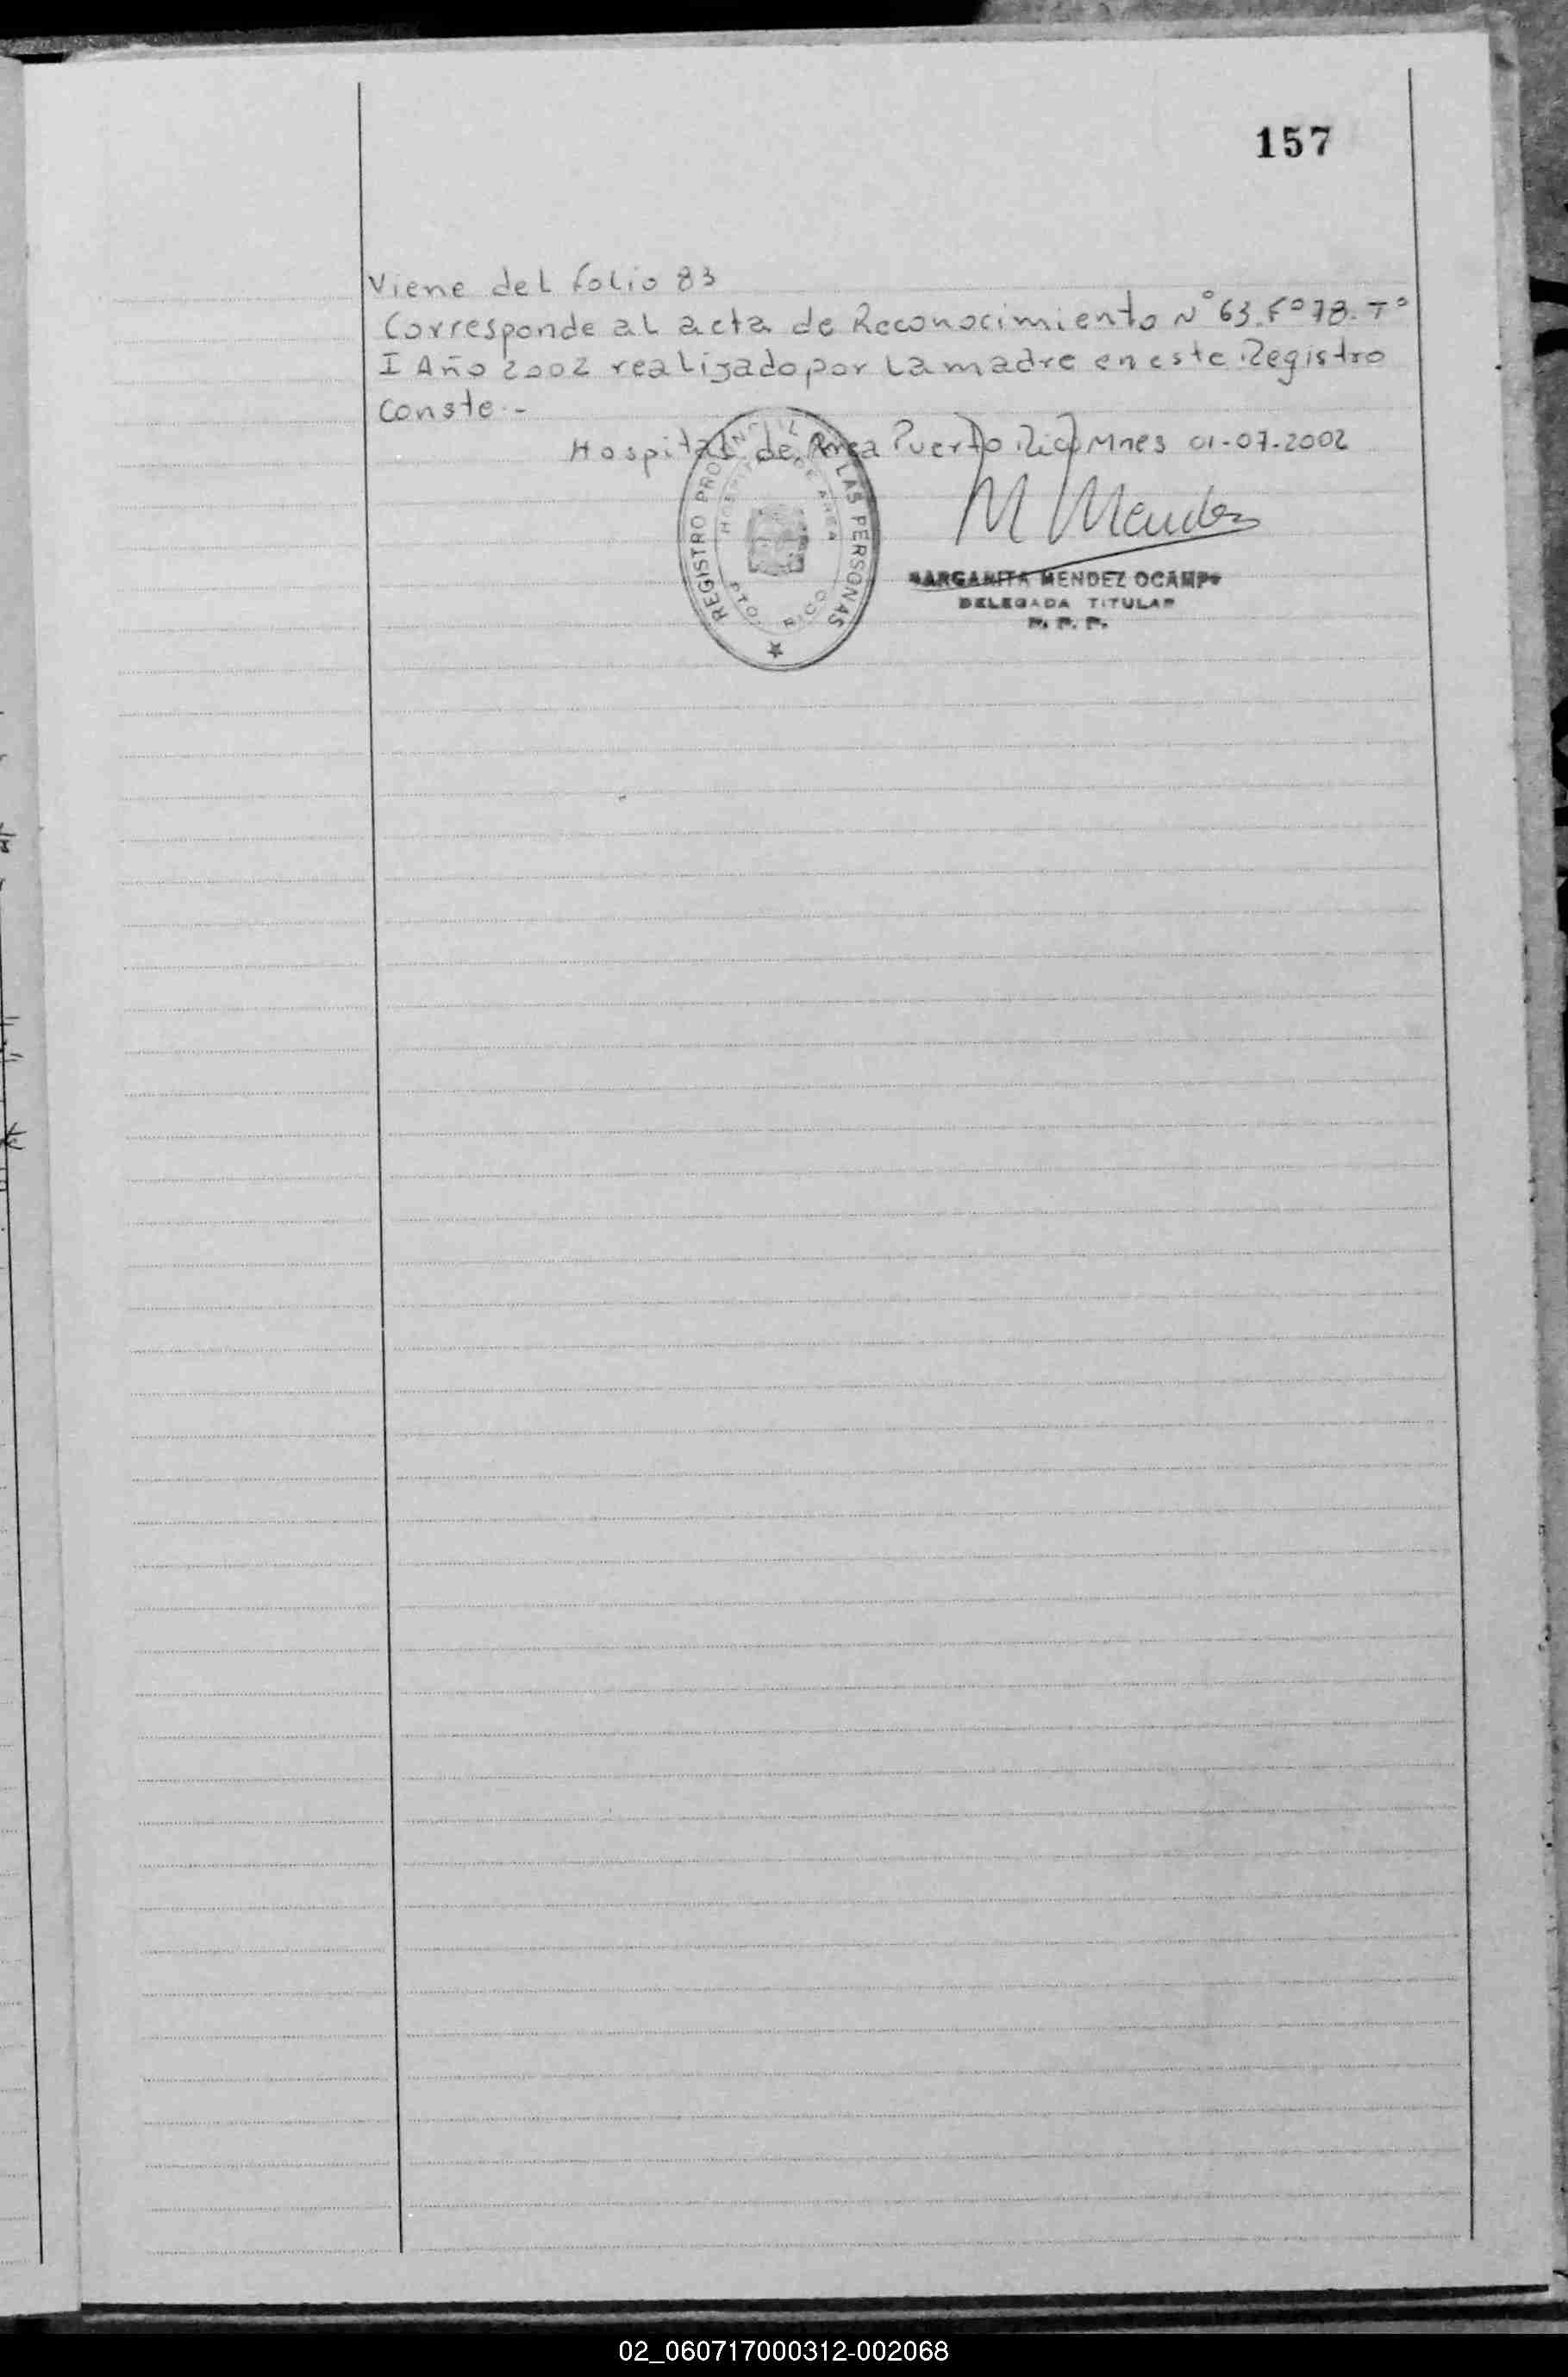 157
Viene del folio 83
Corresponde al acta de Reconocimiento N° 63. F° 78. T°
I Año 2002 realizado por la madre en este Registro
Conste.-
Hospital de Area Puerto Rico Mnes 01-07-2002
M Mendez
REGISTRO PROVINCIAL LAS PERSONAS
HOSPITAL DE AREA
PTO. RICO
MARGARITA MENDEZ OCAMPO
DELEGADA TITULAR
02_060717000312-002068